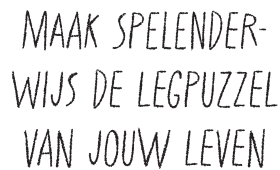 MAAK SPELENDER-
WIJS DE LEGPUZZEL
VAN JOUW LEVEN